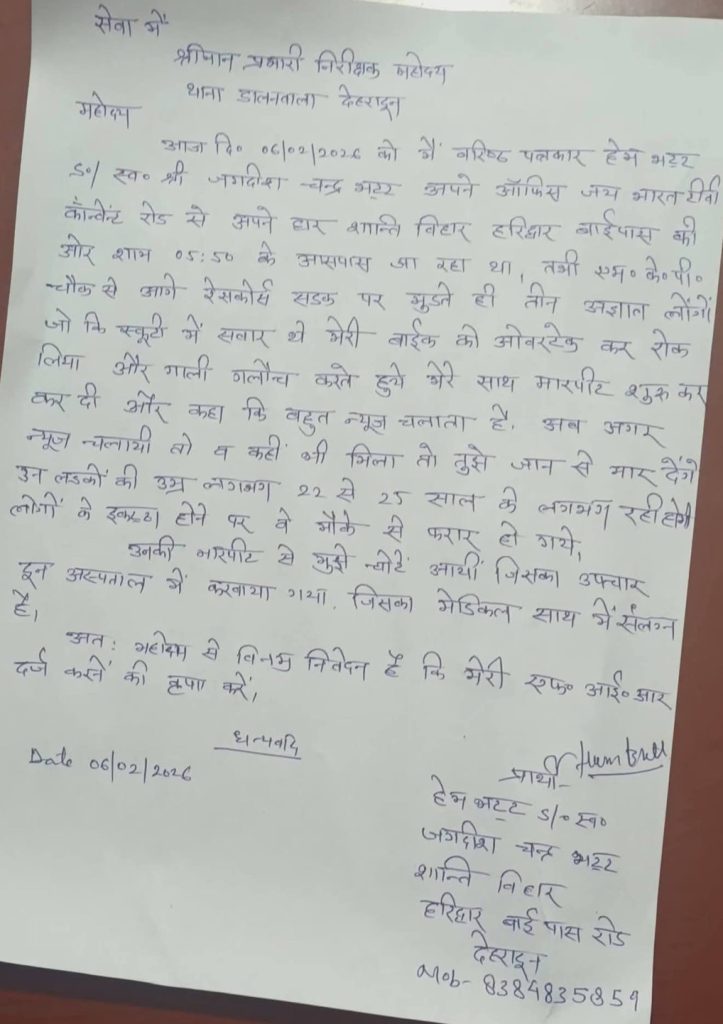 सेवा में
श्रीमान प्रभारी निरीक्षक महोदय
थाना डालनवाला देहरादून
महोदय
आज दि० 06/02/2026 को मैं वरिष्ठ पत्रकार हेम भट्ट
S०/ स्व० श्री जगदीश चन्द्र भट्ट अपने ऑफिस जय भारत टीवी
कॉन्वेंट रोड से अपने घर शान्ति विहार हरिद्वार बाईपास की
ओर शाम 05:50 के आसपास जा रहा था, तभी एम० के० पी०
चौक से आगे रेसकोर्स सडक पर मुडते ही तीन अज्ञात लोंगों
जो कि स्कूटी में सवार थे मेरी बाईक को ओवरटेक कर रोक
लिया और गाली गलौच करते हुये मेरे साथ मारपीट शुरू कर
कर दी और कहा कि बहुत न्यूज चलाता है. अब अगर
न्यूज चलायी तो व कहीं भी मिला तो तुझे जान से मार देंगे
उन लडकों की उम्र लगभग 22 से 25 साल के लगभग रही होगी
लोगों के इकठठा होने पर वे मौके से फरार हो गये,
उनकी मारपीट से मुझे चोटें आयीं जिसका उपचार
दून अस्पताल में करवाया गया. जिसका मेडिकल साथ में संलग्न
है।
अत: महोदय से विनम्र निवेदन है कि मेरी एफ० आई० आर
दर्ज करने की कृपा करें,
धन्यवाद
Date 06/02/2026
प्रार्थी-
हेम भट्ट S/० स्व०
जगदीश चन्द्र भट्ट
शान्ति विहार
हरिद्वार बाई पास रोड
देहरादून
Mob- 8384835859